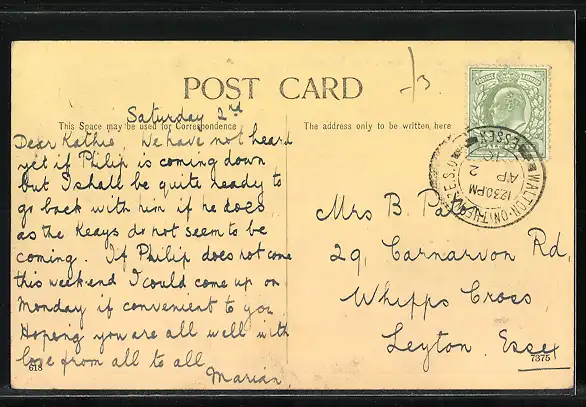 POST CARD
/3
This Space may be used for Correspondence
The address only to be written here
Saturday 2nd
Dear Kathie, We have not heard
yet if Philip is coming down
but I shall be quite ready to
go back with him if he does
as the Keays do not seem to be
coming. If Philip does not come
this weekend I could come up on
Monday if convenient to you
Hoping you are all well with
love from all to all
Marian
618
WALTON-ON-THE-
S.O.
ESSEX
12.30PM
AP 2
10
Mrs B.
29, Carnarvon Rd,
Whipps Cross
Leyton. Essex
7375